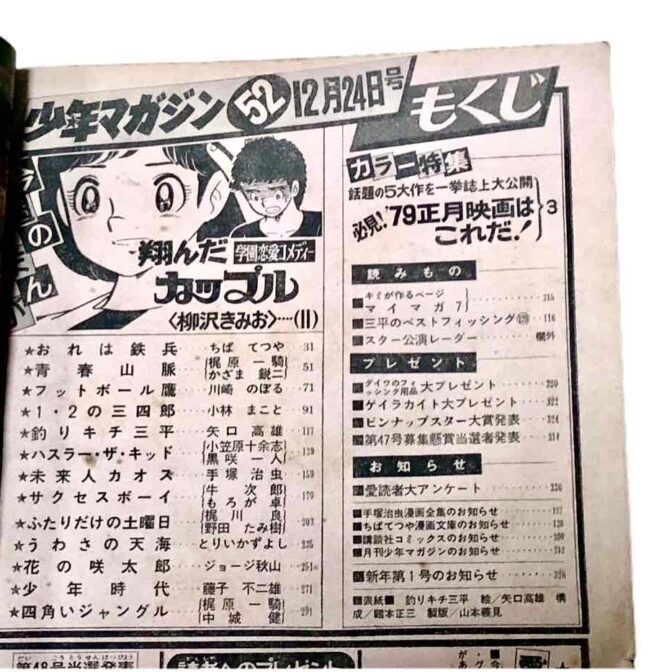 少年マガジン 52 12月24日号
もくじ
翔んだカップル
学園恋愛コメディー
〈柳沢きみお〉‥‥(11)
★おれは鉄兵 ちばてつや 31
★青春山脈 梶原一騎 かざま鋭二 51
★フットボール鷹 川崎のぼる 71
★1・2の三四郎 小林まこと 91
★釣りキチ三平 矢口高雄 117
★ハスラー・ザ・キッド 小笠原十余志 黒咲一人 139
★未来人カオス 手塚治虫 159
★サクセスボーイ 牛次郎 もろが卓 179
★ふたりだけの土曜日 梶川良 野田たみ樹 203
★うわさの天海 とりいかずよし 235
★花の咲太郎 ジョージ秋山 251
★少年時代 藤子不二雄 271
★四角いジャングル 梶原一騎 中城健 291
カラー特集
話題の5大作を一挙誌上大公開
必見!'79正月映画は
これだ! 3
読みもの
■キミが作るページ
マイマガ7 315
■三平のベストフィッシング 116
■スター公演レーダー 欄外
プレゼント
■ダイワのフィッシング用品 大プレゼント 320
■ゲイラカイト大プレゼント 322
■ピンナップスター大賞発表 324
■第47号募集懸賞当選者発表 314
お知らせ
■愛読者大アンケート 330
■手塚治虫漫画全集のお知らせ
■ちばてつや漫画文庫のお知らせ
■講談社コミックスのお知らせ
■月刊少年マガジンのお知らせ
■新年第1号のお知らせ 328
■表紙■ 釣りキチ三平 絵/矢口高雄 構
成/鶴本正三 製版/山本義見
第48号当選発表
読者へのプレゼント